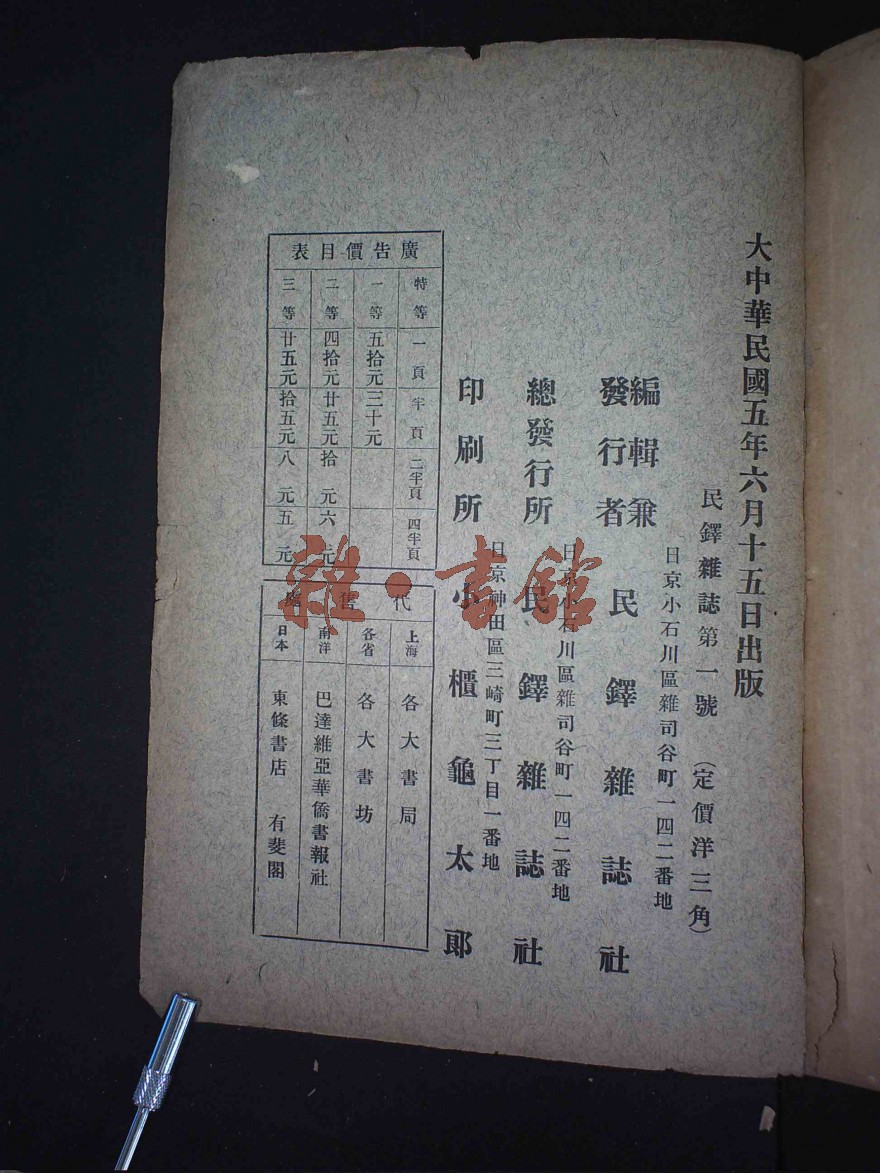 大中華民國五年六月十五日出版
民鐸雜誌第一號　（定價洋三角）
日京小石川區雜司谷町一四二番地
編輯兼
發行者　民鐸雜誌社
日京小石川區雜司谷町一四二番地
總發行所　民鐸雜誌社
日京神田區三崎町三丁目一番地
印刷所　小櫃龜太郎
廣告價目表
特等　一頁　半頁　二半頁　四半頁
一等　五拾元　三十元
二等　四拾元　廿五元　拾元　六元
三等　廿五元　拾五元　八元　五元
代售處
上海　各大書局
各省　各大書坊
南洋　巴達維亞華僑書報社
日本　東條書店　有斐閣
雜·書館